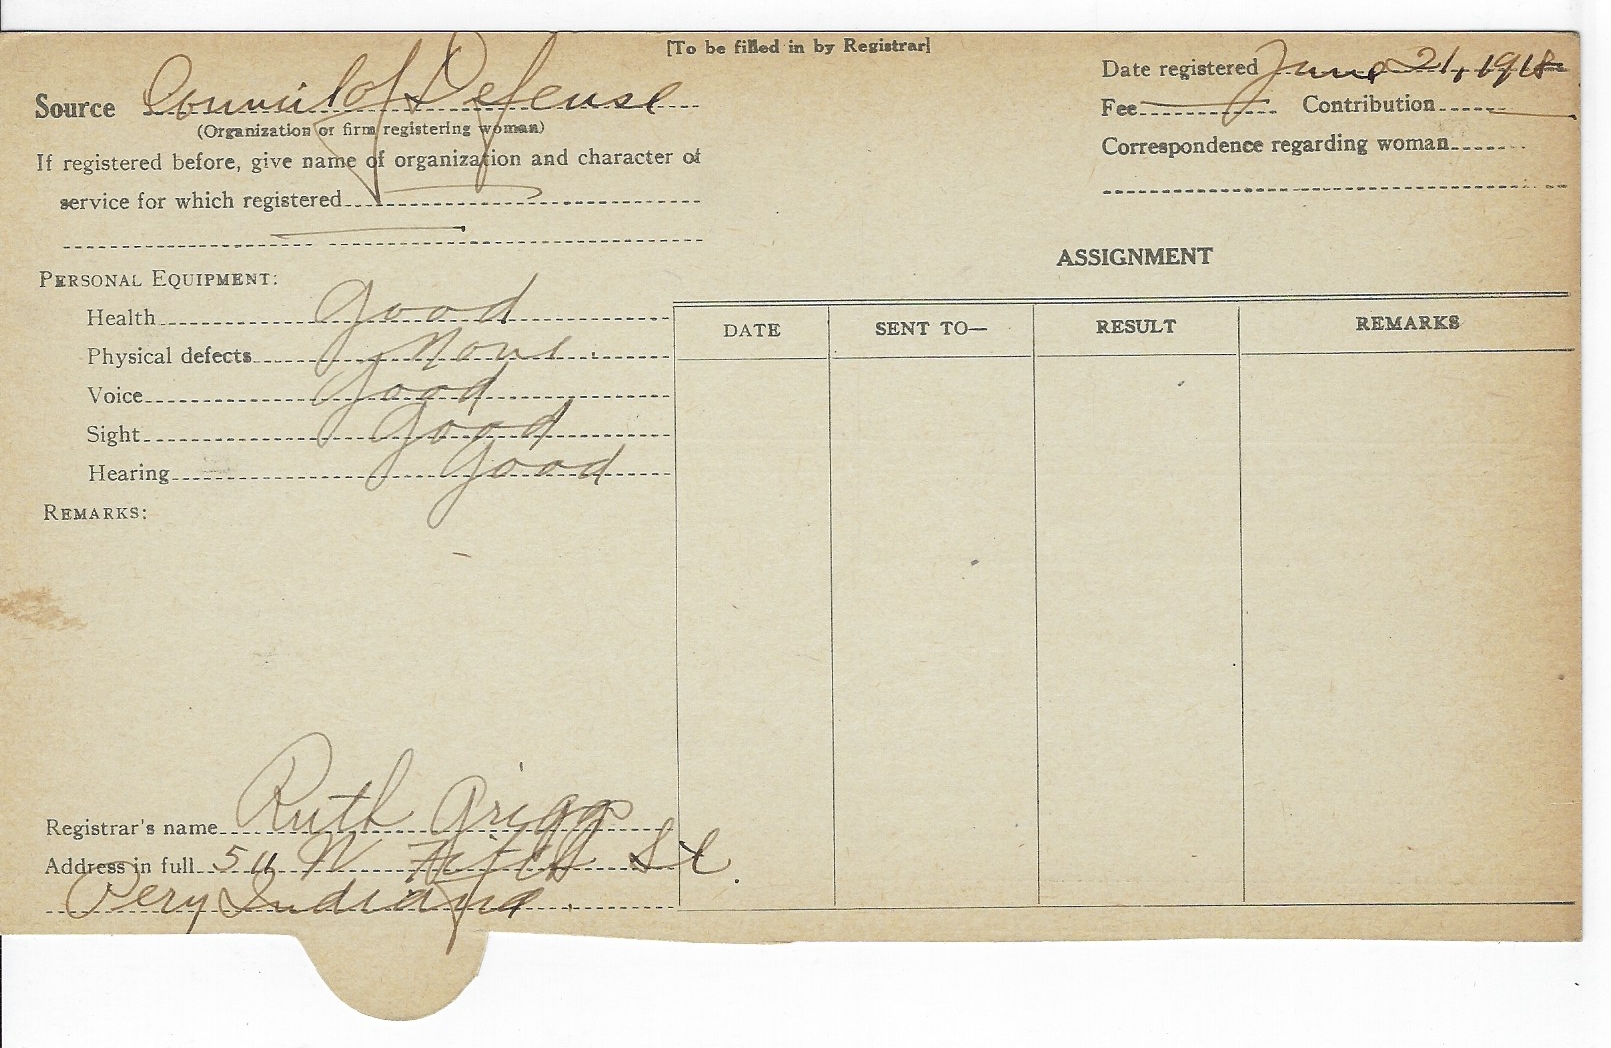 [To be filled in by Registrar]
Source Council of Defense
(Organization or firm registering woman)
If registered before, give name of organization and character of
service for which registered
Date registered June 21, 1918
Fee Contribution
Correspondence regarding woman
PERSONAL EQUIPMENT:
Health Good
Physical defects None.
Voice Good
Sight Good
Hearing Good
REMARKS:
ASSIGNMENT
DATE SENT TO— RESULT REMARKS
Registrar's name Ruth Griggs
Address in full 511 W Fifth St.
Peru Indiana.